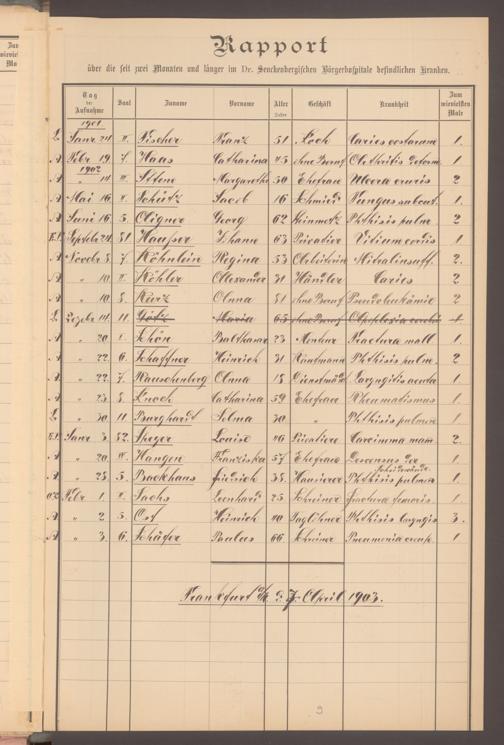 Rapport
über die seit zwei Monaten und länger im Dr. Senckenbergischen Bürgerhospitale befindlichen Kranken.
Tag der Aufnahme Saal Zuname Vorname Alter Jahre Geschäft Krankheit Zum wievielsten Male
1901
L. Janr 24 Fischer Franz 51 Koch 1.
A Febr 19 7. Haas Catharina 45 ohne Beruf 1.
1902
A " 14 Margarethe 50 Ehefrau Ulcera cruris 2
A Mai 16 Schütz Jacob 16 Schmied Fungus 1.
A Juni 16 5. Georg 62 Phthisis pulm 2
Septbr 24 51 Hausser Johann 63 Privatier Vitium cordis 1
A Novbr 8 7. Köhnlein Regina 53 Mitralinsuff. 2.
A " 10 Köhler Alexander 31 Händler Caries 2
A " 10 8. Kurz Anna 51 ohne Beruf Pseudoleukämie 2
L Dezbr 14 11 Götz Maria 65 ohne Beruf Apoplexia cerebri 1
A " 20 Schön Balthasar 23 Fractura mall 1.
A " 22 6. Schaffner Heinrich 31 Kaufmann Phthisis pulm. 2
A " 22 7. Rauschenberg Anna 18 Dienstmäd Laryngitis acuta 1.
A " 23 8. Knoch Catharina 59 Ehefrau Rheumatismus 1.
L " 30 11 Burghardt Selma 30 " Phthisis pulmon 1.
Janr 3 52. Louise 46 Privatiere Carcinoma mam. 2.
A " 20 Franziska 57 Ehefrau 1.
A " 25 5. Backhaus Friedrich 35. Hausierer Phthisis pulmon 1.
Febr 1 Sachs Leonhard 25 Schreiner Fractura femoris. 1
A " 2 5. Ost Heinrich 40 Taglöhner Phthisis laryngis 3.
A " 3. 6. Schäfer Paulus 66 Schreiner Pneumonia croup. 1
Frankfurt a/M d. 7. April 1903.
9